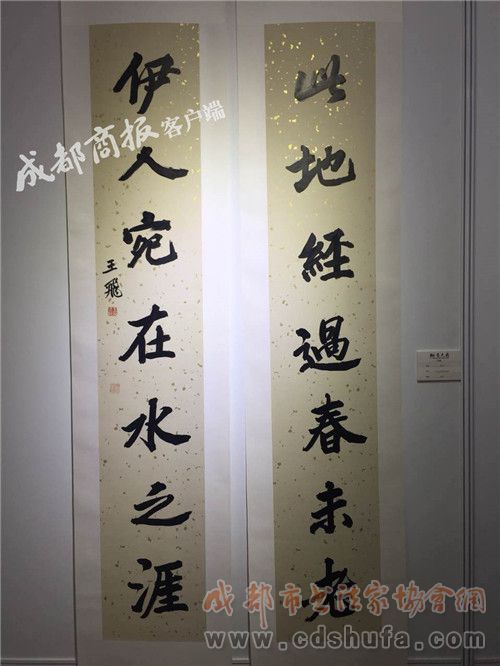 此地經過春未老
伊人宛在水之涯
王飛
成都商报客户端
成都市书法家协会網
www.cdshufa.com